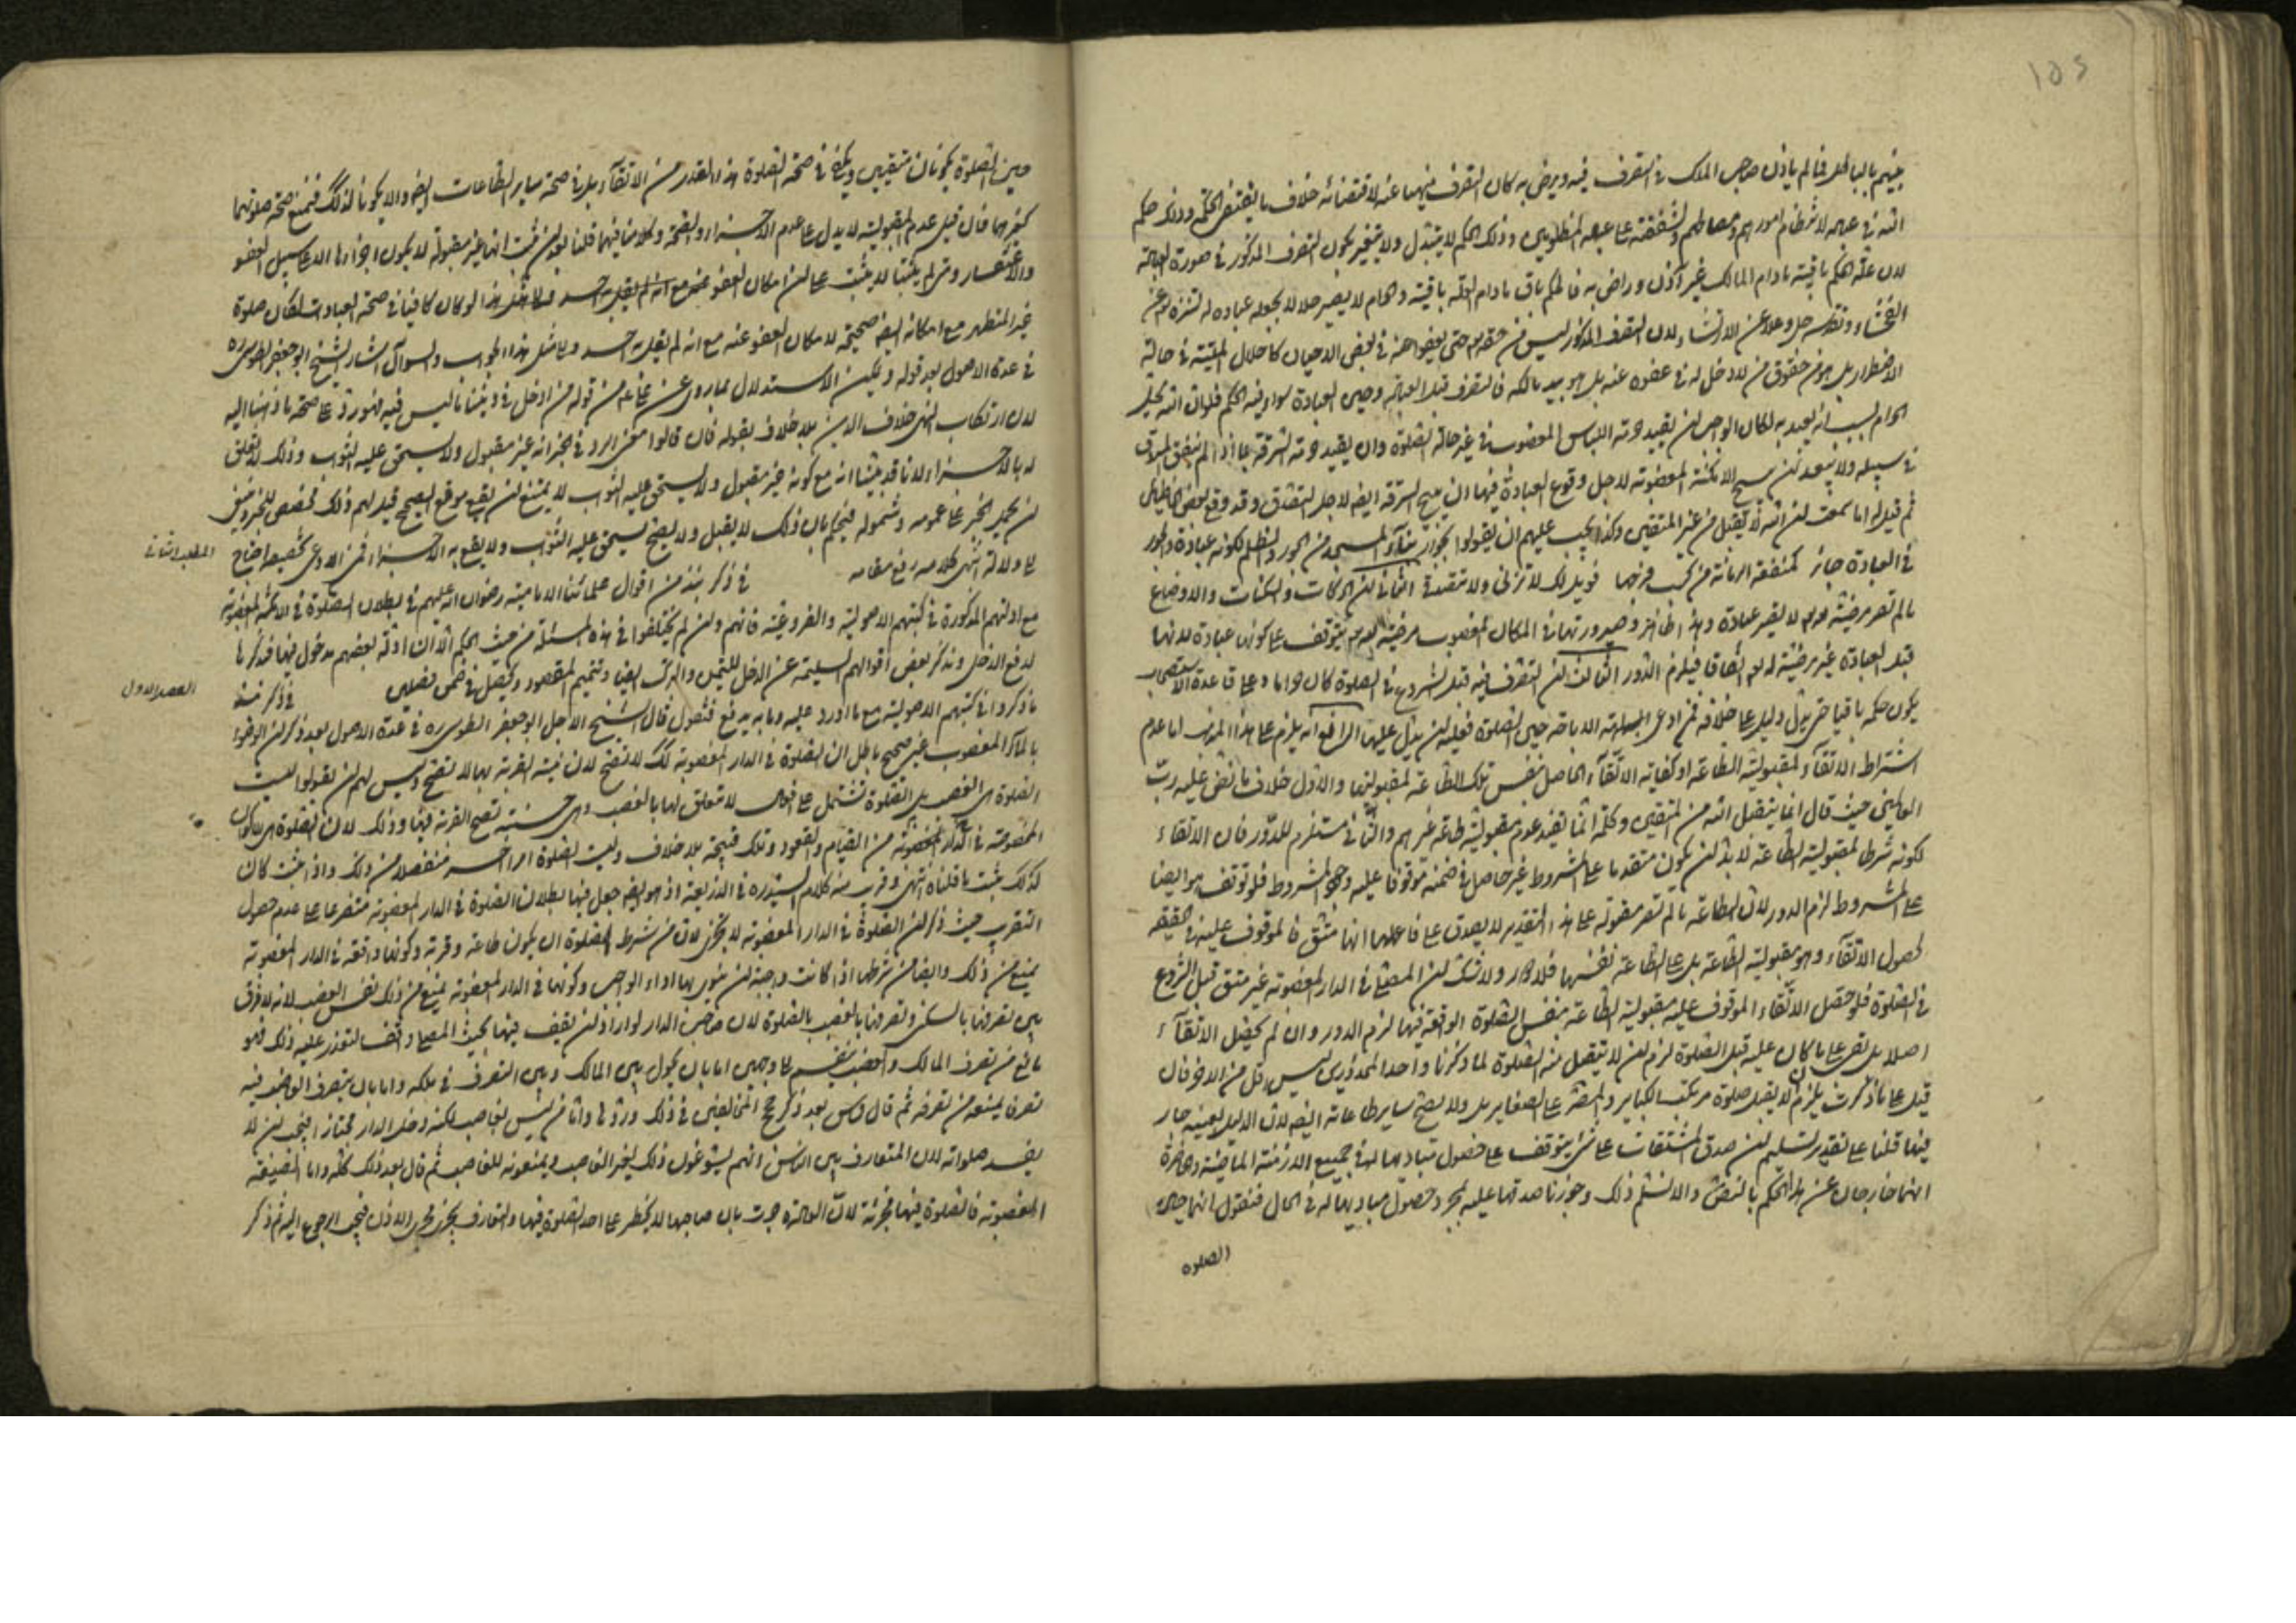 بينهم بالباطل فما لم ياذن صاحب الملك في التصرف فيه ويرضى به كان التصرف منهيا عنه لاقتضائه خلاف ما يقتضى الحكمة وذلك حكم
الله في عباده لانتظام امورهم ومصالحهم ولشفقته على عباده المظلومين وذلك الحكم لا يتبدل ولا يتغير بكون التصرف المذكور في صورة العبادة
لان علة الحكم باقية ما دام المالك غير آذن وراض به فالحكم باق ما دام العلة باقية والحرام لا يصير حلالا بجعله عبادة له لتنزهه عن
الفحشاء وتقدسه جل وعلا عن الارتشاء ولان التصرف المذكور ليس من حقه حتى يعفوا عنه في بعض الاحيان كاحلال الميتة في حالة
الاضطرار بل هو من حقوق من لا دخل له في عفوه عنه بل هو بيد مالكه فالتصرف قبل العبادة وحين العبادة سواء فيه الحكم فلو ان الله يحل
الحرام بسبب انه يعبد به لكان الواجب ان يقيد حرمة اللباس المغصوب في غير حالة الصلوة وان يقيد حرمة السرقة بما اذا لم ينفق المسروق
في سبيله ولا يبعد ممن يبيح الامكنة المغصوبة لاجل وقوع العبادة فيها ان يبيح السرقة ايضا لاجل التصدق وقد وقع لبعض الجاهلين
ثم قيل له اما سمعت ان الله لا يتقبل من غير المتقين وكذا يجب عليهم ان يقولوا بجواز بناء المسجد من الجور والظلم لكونه عبادة والجور
في العبادة جائز كمنفقة الرمانة من كسب فرجها فويل لك لا تزنى ولا تتصدق الثاني ان الحركات والسكنات والاوضاع
ما لم تصر مرضية لا يصير عبادة وهذا ظاهر وصيرورتها في المكان المغصوب مرضية يتوقف على كونها عبادة لانها
قبل العبادة غير مرضية له اتفاقا فيلزم الدور الثالث ان التصرف فيه قبل الشروع في الصلوة كان حراما وعلى قاعدة الاستصحاب
يكون حكمه باقيا حتى يدل دليل على خلافه فمن ادعى الاباحة حين الصلوة فعليه ان يدل عليها الرابع انه يلزم على هذا المذهب اما عدم
اشتراط الاتقاء لمقبولية الطاعة او كفاية الاتقاء الحاصل بنفس تلك الطاعة لمقبوليتها والاول خلاف ما نص عليه رب
العالمين حيث قال انما يتقبل الله من المتقين وكلمة انما تفيد عدم مقبولية طاعة غيرهم والثاني مستلزم للدور فان الاتقاء
لكونه شرطا لمقبولية الطاعة لا بد ان يكون متقدما على المشروط غير حاصل في ضمنه موقوفا عليه وجود المشروط فلو توقف هو ايضا
على المشروط لزم الدور لان الطاعة ما لم تصر مقبولة على هذا التقدير لا يصدق على فاعلها انها متق فالموقوف عليه في الحقيقة
لحصول الاتقاء وهو مقبولية الطاعة بل على الطاعة نفسها فلا دور ولا شك ان المصلي في الدار المغصوبة غير متق قبل الشروع
في الصلوة فلو حصل الاتقاء الموقوف عليه مقبولية الطاعة بنفس الصلوة الواقعة فيها لزم الدور وان لم يحصل الاتقاء
اصلا بل بقى على ما كان عليه قبل الصلوة لزم ان لا تتقبل منه الصلوة لما ذكرنا واحد المحذورين ليس اقل من الاخر فان
قيل على ما ذكرت يلزم ان لا يقبل صلوة مرتكب الكباير والمصر على الصغاير بل ولا يصح ساير طاعاته ايضا لان الدليل بعينه جار
فيها قلنا على تقدير تسليم ان صدق المشتقات على شئ يتوقف على حصول مباديها له في جميع الازمنة الماضية والحاضرة
انهما خارجان عن هذا الحكم بالنص والا نسلم ذلك وجوزنا صدقها عليه بمجرد حصول مباديها له في الحال فنقول انهما حين
الصلوة
حين الصلوة يكونان متقيين ويكفى في صحة الصلوة هذا القدر من الاتقاء بل في صحة ساير الطاعات ايضا والا يكونا كذلك فنمنع صحة صلوتهما
كغيرهما فان قيل عدم المقبولية لا يدل على عدم الاجزاء والصحة وكلامنا فيهما قلنا بعد ان ثبت انها غير مقبولة لا يكون اجزاؤها الا على سبيل العفو
غير المتطهر مع امكانه ايضا صحيحة لامكان العفو عنه مع انه لم يقل به احد والى مثل هذا الجواب والسؤال اشار الشيخ ابو جعفر الطوسى ره
في عدة الاصول بعد قوله ويمكن الاستدلال بما روى عن النبي ع من قوله من ادخل في ديننا ما ليس فيه فهو رد على صحة ما ذهبنا اليه
لان ارتكاب النهى خلاف الدين بلا خلاف بقوله فان قالوا معنى الرد في الخبر انه غير مقبول ولا يستحق عليه الثواب وذلك لا تعلق
له بالاجزاء لانا قد بينا انه مع كونه غير مقبول ولا يستحق عليه الثواب لا يمتنع ان يقع موقع الصحيح قيل لهم ذلك تخصيص للخبر وينبغى
ان يحمل الخبر على عمومه وشموله فيحكم بان ذلك لا يقبل ولا يصح يستحق عليه الثواب ولا يقع به الاجزاء فمن ادعى تخصيصه احتاج
الى دلالة انتهى كلامه رفع مقامه
المطلب الثاني
في ذكر نبذ من اقوال علمائنا الامامية رضوان الله عليهم في بطلان الصلوة في الامكنة المغصوبة
مع ادلتهم المذكورة في كتبهم الاصولية والفروعية فانهم وان لم يختلفوا في هذه المسئلة من حيث الحكم الا ان ادلة بعضهم مدخول فيها فنذكرها
لدفع الدخل ونذكر بعض اقوالهم السليمة عن الدخل للتيمن والتبرك ايضا وتتميم المقصود ويحصل في ضمن فصلين
الفصل الاول
في ذكر نبذ
ما ذكروا في كتبهم الاصولية مع ما اورد عليه وما به يدفع فنقول قال الشيخ الاجل ابو جعفر الطوسى ره في عدة الاصول بعد ذكر ان الوضوء
بالماء المغصوب غير صحيح باطل ان الصلوة في الدار المغصوبة كك لا تصح لان نية القربة بها لا تصح وليس لهم ان يقولوا ليست
الصلوة هى الغصب بل الصلوة تشتمل على افعال لا تتعلق لها بالغصب وهى حسنة تصح القربة فيها وذلك لان الصلوة هى الاكوان
المخصوصة في الدار المغصوبة من القيام والقعود وتلك قبيحة بلا خلاف وليست الصلوة امرا اخر منفصلا من ذلك واذا ثبت كان
كذلك ثبت ما قلناه انتهى وقريب منه كلام السيد ره في الذريعة اذ هو ايضا جعل فيها بطلان الصلوة في الدار المغصوبة متفرعا على عدم حصول
التقرب حيث ذكر ان الصلوة في الدار المغصوبة لا يجزى لان من شرط الصلوة ان يكون طاعة وقربة وكونها واقعة في الدار المغصوبة
يمنع من ذلك وايضا من شرطها اذا كانت واجبة ان ينوى بها اداء الواجب وكونها في الدار المغصوبة يمنع من ذلك نفس الغصب لانه لا فرق
بين تصرفنا بالسكنى وتصرفنا بالغصب بالصلوة لان صاحب الدار لو اراد ان يقف فيها بحيث المصلي واقف لتعذر عليه ذلك فهو
مانع من تصرف المالك والغصب ينقسم على وجهين اما بان يحول بين المالك وبين التصرف في ملكه واما بان يتصرف الغاصب فيه
تصرفا يمنعه من تصرفه ثم قال قدس بعد ذكر حجج المخالفين في ذلك وردها واما من ليس بغاصب لكنه دخل الدار مجتازا فيجب ان لا
يفسد صلواته لان المتعارف بين الناس انهم يسوغون ذلك لغير الغاصب ويمنعونه للغاصب ثم قال بعد ذلك كله واما الضيعة
المغصوبة فالصلوة فيها مجزئة لان العادة جرت بان صاحبها لا يحظر على احد الصلوة فيها والتعارف يجرى مجرى الاذن فيجب الرجوع اليه ثم ذكر